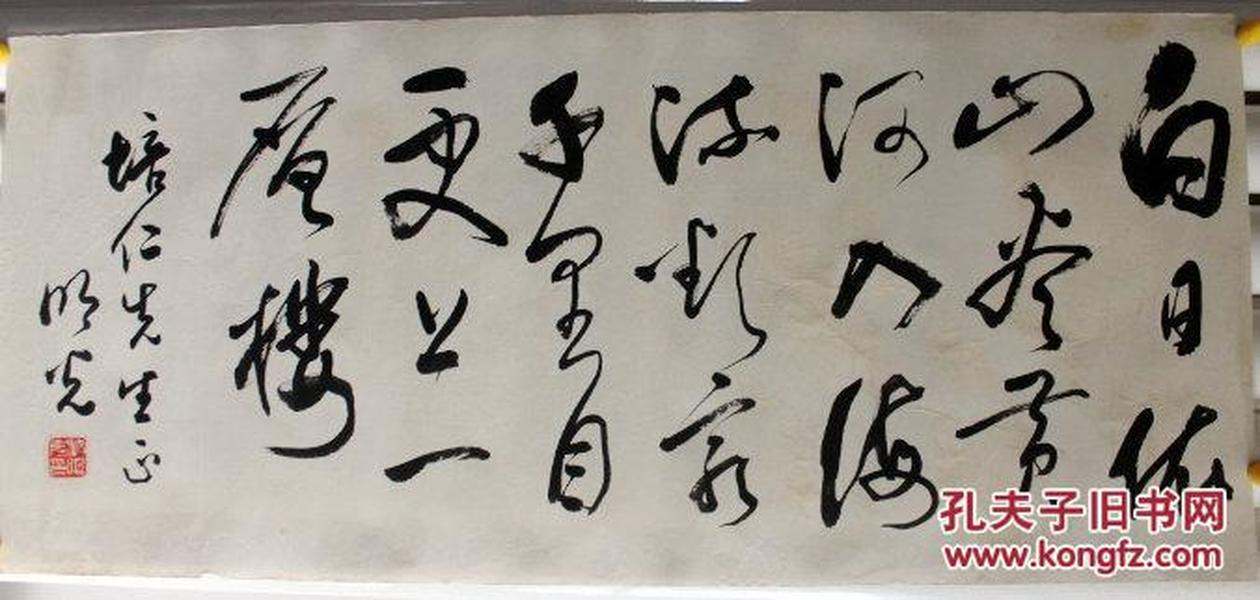 白日依
山尽黄
河入海
流欲穷
千里目
更上一
层楼
培仁先生正
明光
孔夫子旧书网
www.kongfz.com